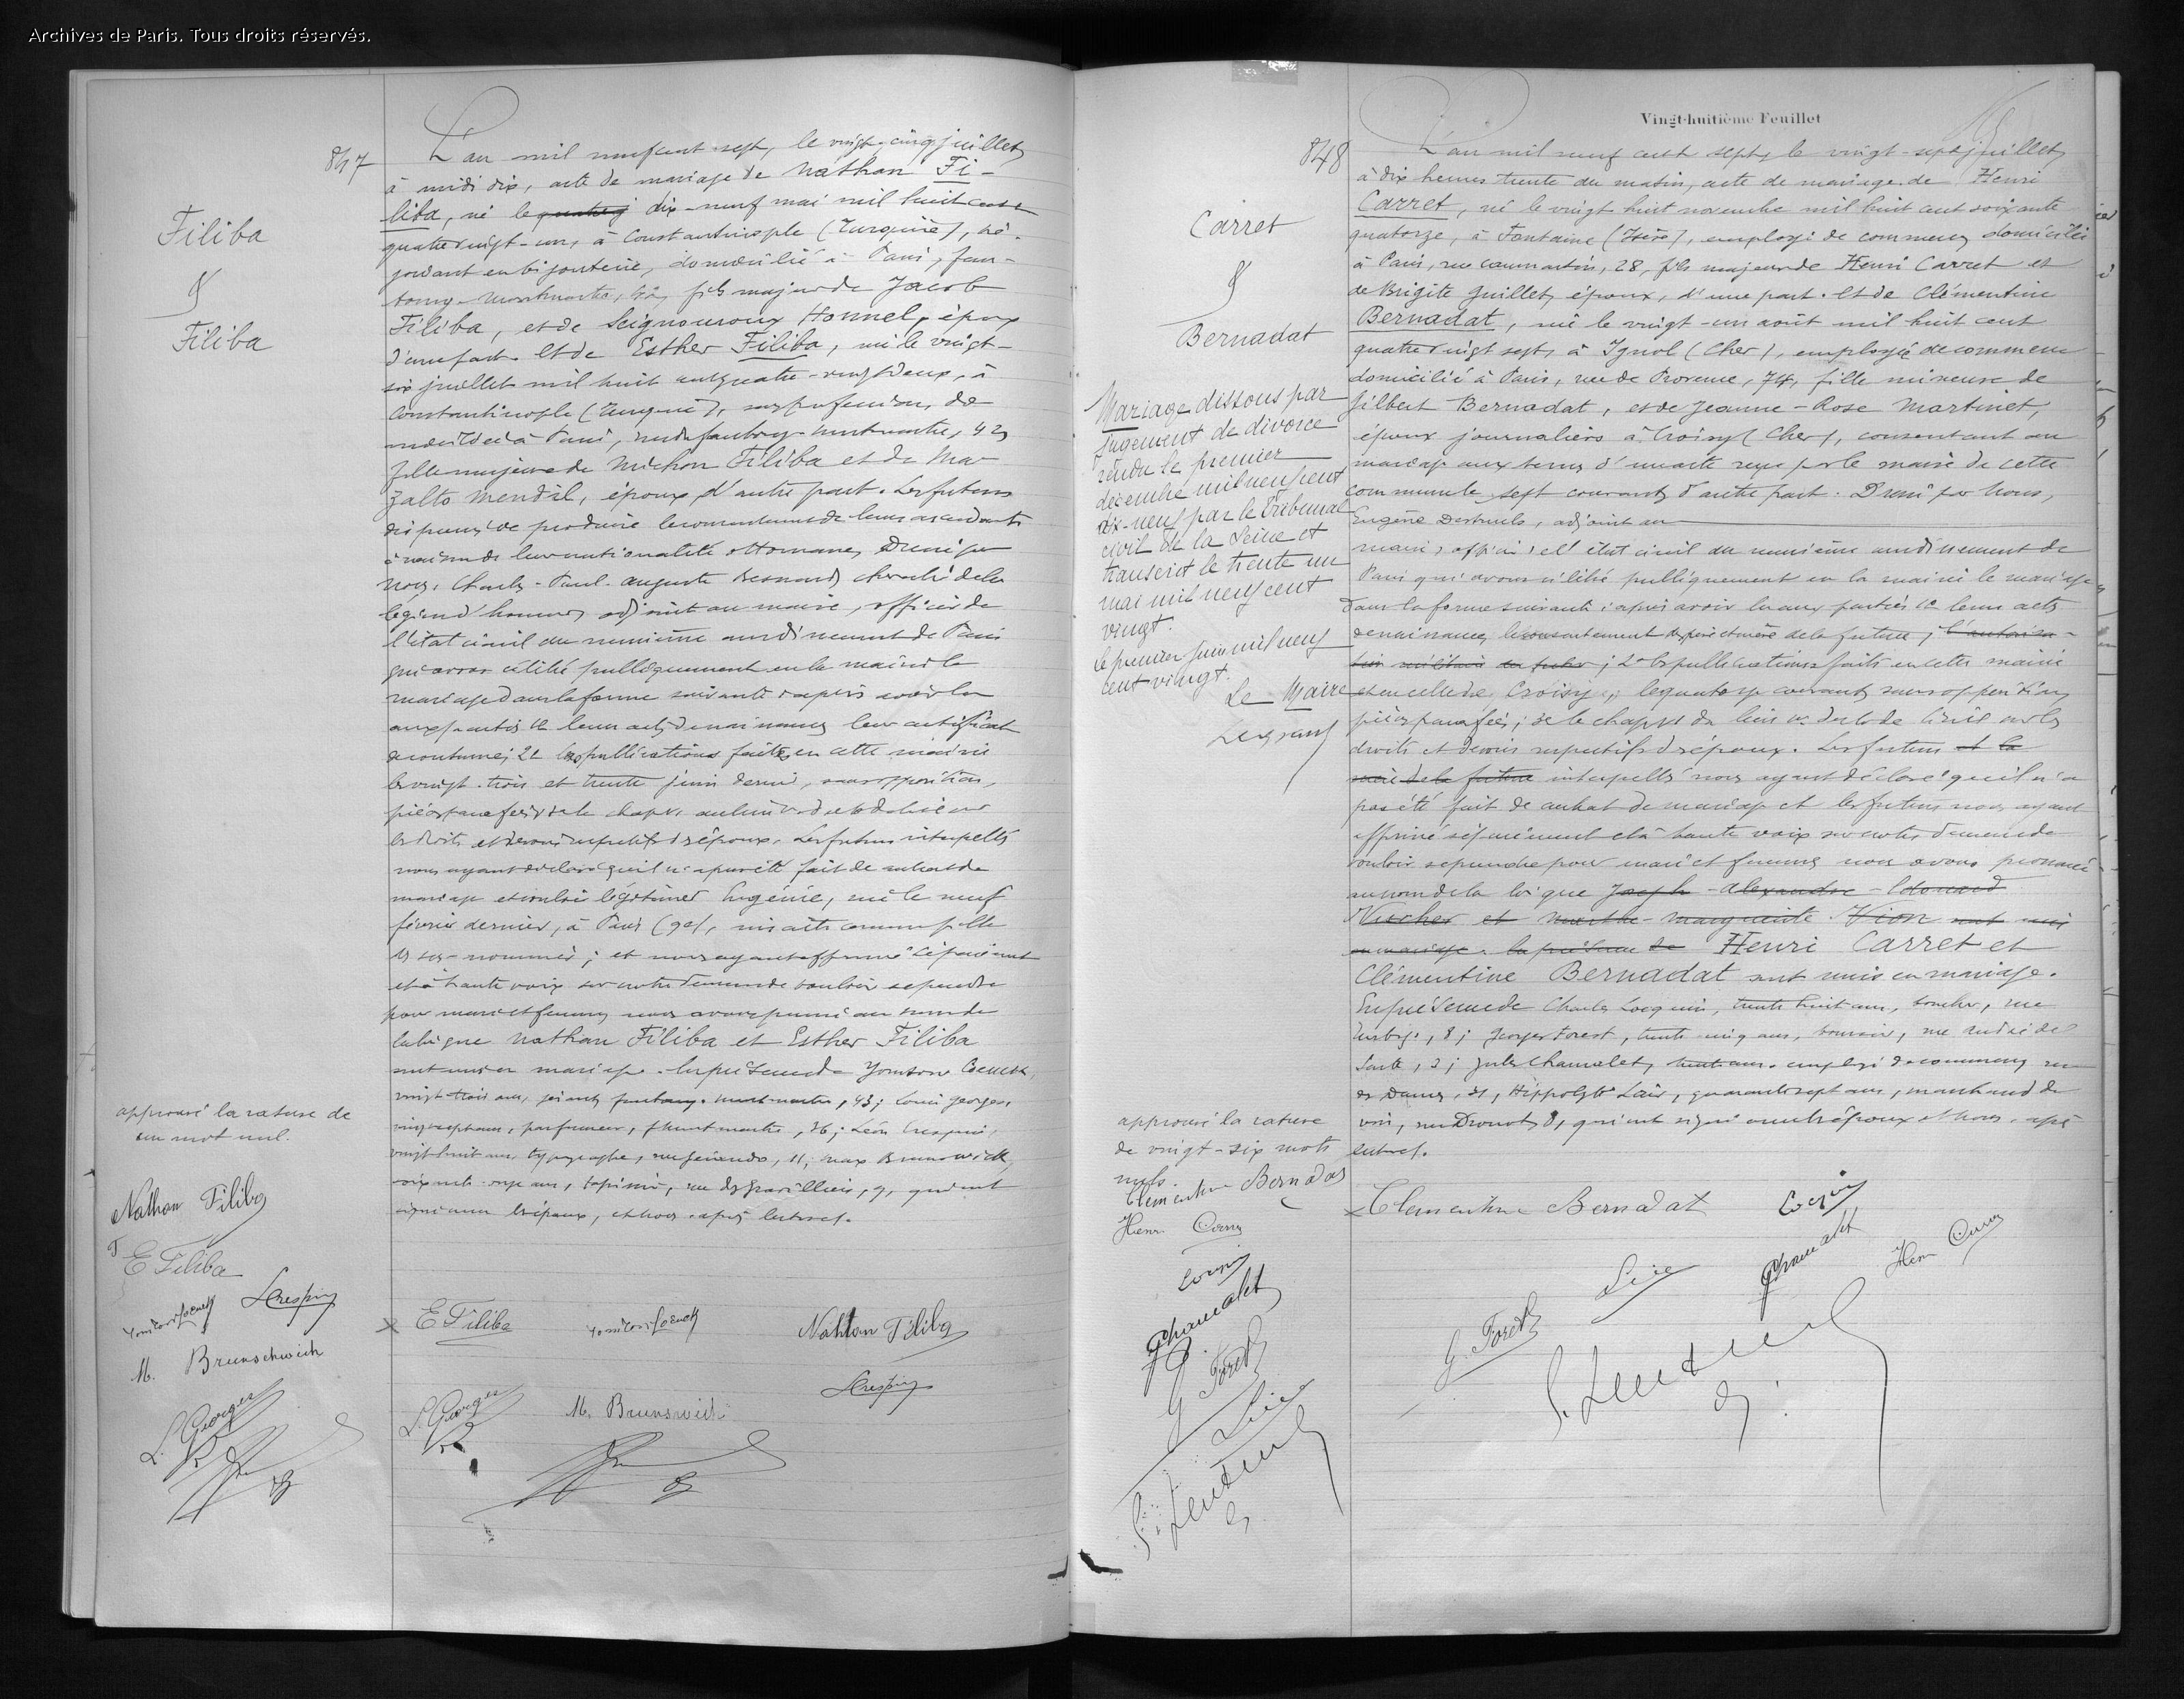 Archives de Paris. Tous droits réservés.
847
Filiba
&
Filiba
L'an mil neuf cent sept, le vingt-cinq juillet
à midi dix, acte de mariage de Nathan Fi-
liba, né le quatre dix-neuf mai mil huit cent
quatre vingt-un, à Constantinople (Turquie), né-
gociant en bijouterie, domicilié à Paris, faubourg
Montmartre, fils majeur de Jacob
Filiba, et de Seignouroux Honnel, époux
d'une part. Et de Esther Filiba, née le vingt-
six juillet mil huit cent quatre-vingt deux, à
Constantinople (Turquie), sans profession, do-
miciliée à Paris, rue du faubourg Montmartre, 42,
fille majeure de Michon Filiba et de Ma-
zalto Mendil, époux, d'autre part. Les futurs
dispensés de produire le consentement de leurs ascendants
à raison de leur nationalité ottomane, Dressé par
nous, Charles-Paul-Auguste Besnard, chevalier de la
légion d'honneur, adjoint au maire, officier de
l'état civil du neuvième arrondissement de Paris
qui avons célébré publiquement en la mairie le
mariage dans la forme suivante : après avoir lu
aux parties 1° leurs actes de naissance, leur certificat
de coutume ; 2° les publications faites en cette mairie
les vingt-trois et trente juin dernier, sans opposition,
pièces paraphées ; 3° le chap. VI au livre 1er du code civil sur
les droits et devoirs respectifs des époux. Les futurs interpellés
nous ayant déclaré qu'il n'a pas été fait de contrat de
mariage et vouloir légitimer Eugénie, née le neuf
février dernier, à Paris (9e), inscrite comme fille
des sus-nommés ; et nous ayant affirmé séparément
et à haute voix sur notre demande vouloir se prendre
pour mari et femme, nous avons prononcé au nom de
la loi que Nathan Filiba et Esther Filiba
sont unis en mariage. En présence de Yomtow
vingt-trois ans, faubourg Montmartre, 43 ; Louis Georges,
vingt-sept ans, parfumeur, 36 ; Léon Crespin,
vingt-huit ans, typographe, 11 ; Max Brunswick,
soixante-onze ans, tapissier, rue des Gravilliers, 9, qui ont
signé avec les époux, et nous, après lecture.
approuvé la rature de
un mot nul.
Nathan Filiba
E Filiba
Crespin
M. Brunschwich
L. Georges
E Filiba
Nathan Filiba
Crespin
L. Georges
M. Brunswick
Vingt-huitième Feuillet
848
Carret
&
Bernadat
Mariage dissous par
jugement de divorce
rendu le premier
décembre mil neuf cent
dix-neuf par le Tribunal
civil de la Seine et
transcrit le trente un
mai mil neuf cent
vingt.
le premier juin mil neuf
cent vingt.
Le Maire
Legrand
L'an mil neuf cent sept, le vingt-sept juillet,
à dix heures trente du matin, acte de mariage de Henri
Carret, né le vingt huit novembre mil huit cent soixante
quatorze, à Fontaine (Isère), employé de commerce, domicilié
à Paris, rue Caumartin, 28, fils majeur de Henri Carret et
de Brigite Guillet, époux, d'une part. Et de Clémentine
Bernadat, née le vingt-un août mil huit cent
quatre vingt sept, à Ignol (Cher), employée de commerce
domiciliée à Paris, rue de Provence, 74, fille mineure de
Gilbert Bernadat, et de Jeanne-Rose Martinet,
époux journaliers à Croisy (Cher), consentant au
mariage aux termes d'un acte reçu par le maire de cette
commune le sept courant, d'autre part. Dressé par nous,
Eugène adjoint au
maire, officier de l'état civil du neuvième arrondissement de
Paris qui avons célébré publiquement en la mairie le mariage
dans la forme suivante : après avoir lu aux parties 1° leurs actes
de naissance, le consentement des père et mère de la future ; l'autorisa-
tion militaire du futur ; 2° les publications faites en cette mairie
et en celle de Croisy, le quatorze courant, sans opposition,
pièces paraphées ; 3° le chap. VI du livre 1er du code civil sur les
droits et devoirs respectifs des époux. Les futurs et la
mère de la future interpellés nous ayant déclaré qu'il n'a
pas été fait de contrat de mariage et les futurs nous ayant
affirmé séparément et à haute voix sur notre demande
vouloir se prendre pour mari et femme, nous avons prononcé
au nom de la loi que Joseph-Alexandre-Edouard
et Marthe-Marguerite Vion sont unis
en mariage. En présence de Henri Carret et
Clémentine Bernadat sont unis en mariage.
En présence de Charles Locquin, trente huit ans, boucher, rue
Turbigo, 8 ; Georges Foret, trente cinq ans, boursier, rue André del
Sarte, 3 ; Jules Chamalet, trente ans, employé de commerce, rue
des Dames, 21, Hippolyte Lair, quarante sept ans, marchand de
vin, rue Drouot, 8, qui ont signé avec les époux et nous, après
lecture.
approuvé la rature
de vingt-six mots
nuls.
Clementine Bernadat
Henri Carret
Chamalet
G Foret
Clementine Bernadat
Chamalet
Henri Carret
G. Foret